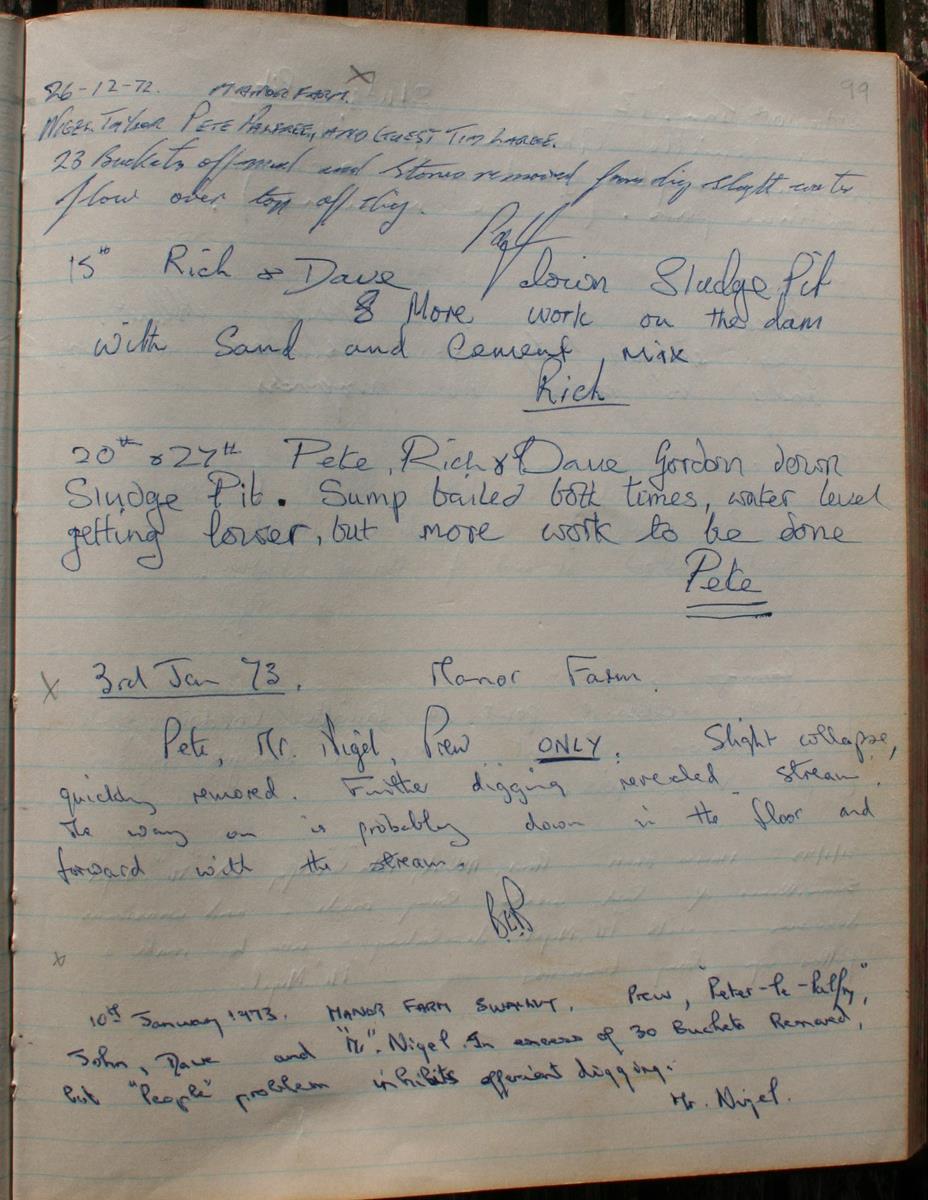 99
26-12-72. MANOR FARM.
NIGEL TAYLOR PETE PALFREE, AND GUEST TIM LARGE.
23 Buckets of mud and stones removed from dig slight water
flow over top of dig.
Palf
15th Rich & Dave down Sludge Pit
& More work on the dam
with Sand and Cement mix
Rich
20th & 27th Pete, Rich & Dave Gordon down
Sludge Pit. Sump bailed both times, water level
getting lower, but more work to be done
Pete
3rd Jan 73. Manor Farm.
Pete, Mr. Nigel, Prew ONLY. Slight collapse,
quickly removed. Further digging revealed stream.
The way on is probably down in the floor and
forward with the stream.
10th January 1973. MANOR FARM SWALLET. Prew, "Peter-le-Palfry",
John, Dave and "Mr". Nigel. In excess of 30 Buckets Removed,
but "People" problem inhibits efficient digging.
Mr. Nigel.